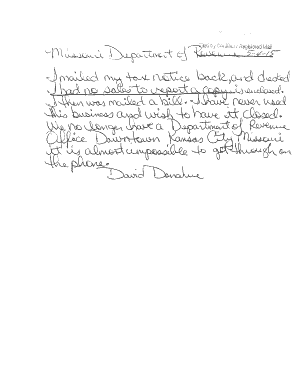 Missouri Department of Revenue 5-6-15
I mailed my tax notice back, and checked
I had no sales to report a copy is enclosed.
I then was mailed a bill. I have never used
this business and wish to have it closed.
We no longer have a Department of Revenue
Office Downtown Kansas City, Missouri
it is almost impossible to get through on
the phone.
David Donahue